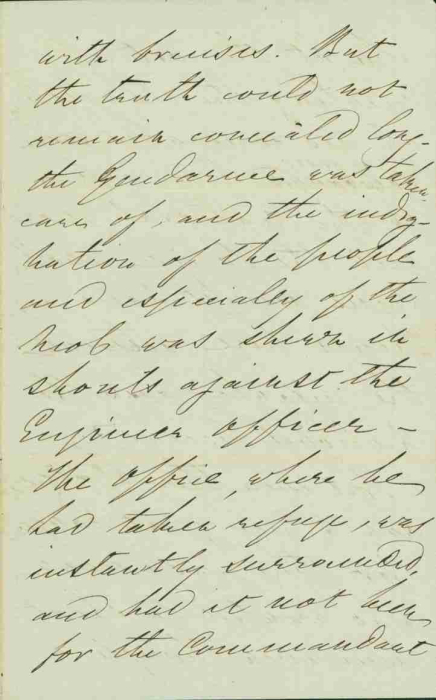 with bruises. But
the truth could not
remain concealed long.
the Gendarme was taken
care of, and the indig-
nation of the people
and especially of the
mob was shewn in
shouts against the
Engineer officer –
The office, where he
had taken refuge, was
instantly surrounded,
and had it not been
for the Commandant